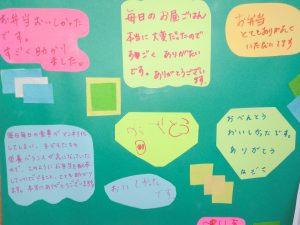 お弁当おいしかった
です。
すごく助かり
ました。
毎日のお昼ごはん
本当に大変だったので
すごく ありがたい
です。
ありがとうござい
ます
お弁当
とてもありがたく
いただいてます
ありがとう
おべんとう
おいしかったです。
ありがとう
おいしかった
です
毎日毎日の食事がマンネリ化
してしまい、子どもたちの
栄養バランスが気になっていた
ので、このようにお弁当を配布
していただけること、とても助かり
ます。本当にありがとうございます。